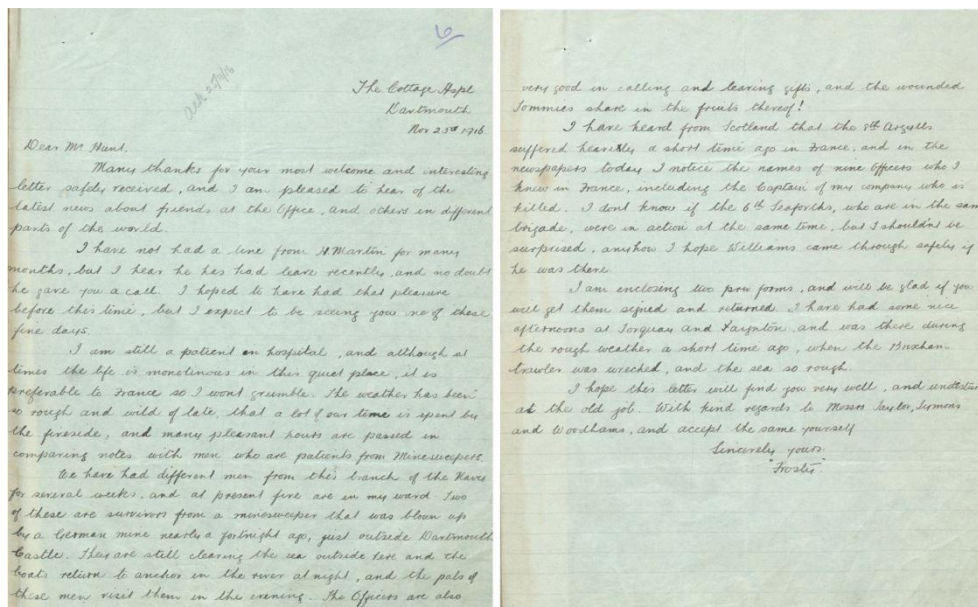 6/
ack 28/11/16
The Cottage Hspl
Dartmouth
Nov 25th 1916.
Dear Mr Hunt,
Many thanks for your most welcome and interesting
letter safely received, and I am pleased to hear of the
latest news about friends at the Office, and others in different
parts of the world.
I have not had a line from H. Martin for many
months, but I hear he has had leave recently, and no doubt
he gave you a call. I hoped to have had that pleasure
before this time, but I expect to be seeing you one of these
fine days.
I am still a patient in hospital, and although at
times the life is monotinous in this quiet place, it is
preferable to France so I wont grumble. The weather has been
so rough and wild of late, that a lot of our time is spent by
the fireside, and many pleasant hours are passed in
comparing notes with men who are patients from Minesweepers.
We have had different men from this branch of the Navy
for several weeks, and at present five are in my ward. Two
of these are survivors from a minesweeper that was blown up
by a German mine nearly a fortnight ago, just outside Dartmouth
Castle. They are still clearing the sea outside here and the
boats return to anchor in the river at night, and the pals of
these men visit them in the evening. The Officers are also
very good in calling and leaving gifts, and the wounded
Tommies share in the fruits thereof!
I have heard from Scotland that the 8th Argylls
suffered heavily a short time ago in France, and in the
newspapers today I notice the names of nine Officers who I
knew in France, including the Captain of my company who is
killed. I dont know if the 6th Seaforths, who are in the same
brigade, were in action at the same time, but I shouldn't be
surprised, anyhow I hope Williams came through safely if
he was there.
I am enclosing two prov forms, and will be glad if you
will get them signed and returned. I have had some nice
afternoons at Torquay and Paynton, and was there during
the rough weather a short time ago, when the Brixham
trawler was wrecked, and the sea so rough.
I hope this letter will find you very well, and
at the old job. With kind regards to Messrs Taylor, Symons
and Woodhams, and accept the same yourself
Sincerely yours.
"Froster"